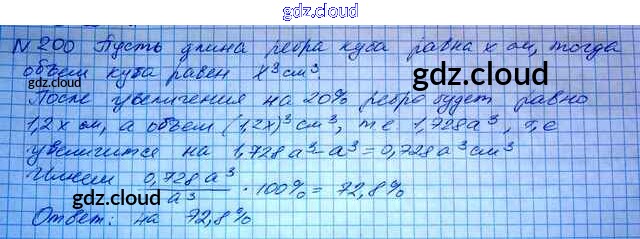 gdz.cloud
N 200 Пусть длина ребра куба равна x см, тогда
объем куба равен x³ см³.
gdz.cloud
После увеличения на 20% ребро будет равно
1,2x см, а объем (1,2x)³ см³, т.е. 1,728a³, т.е
увеличится на 1,728a³ - a³ = 0,728a³ см³
Имеем 0,728a³ / a³ · 100% = 72,8%
gdz.cloud
gdz.cloud
Ответ: на 72,8%